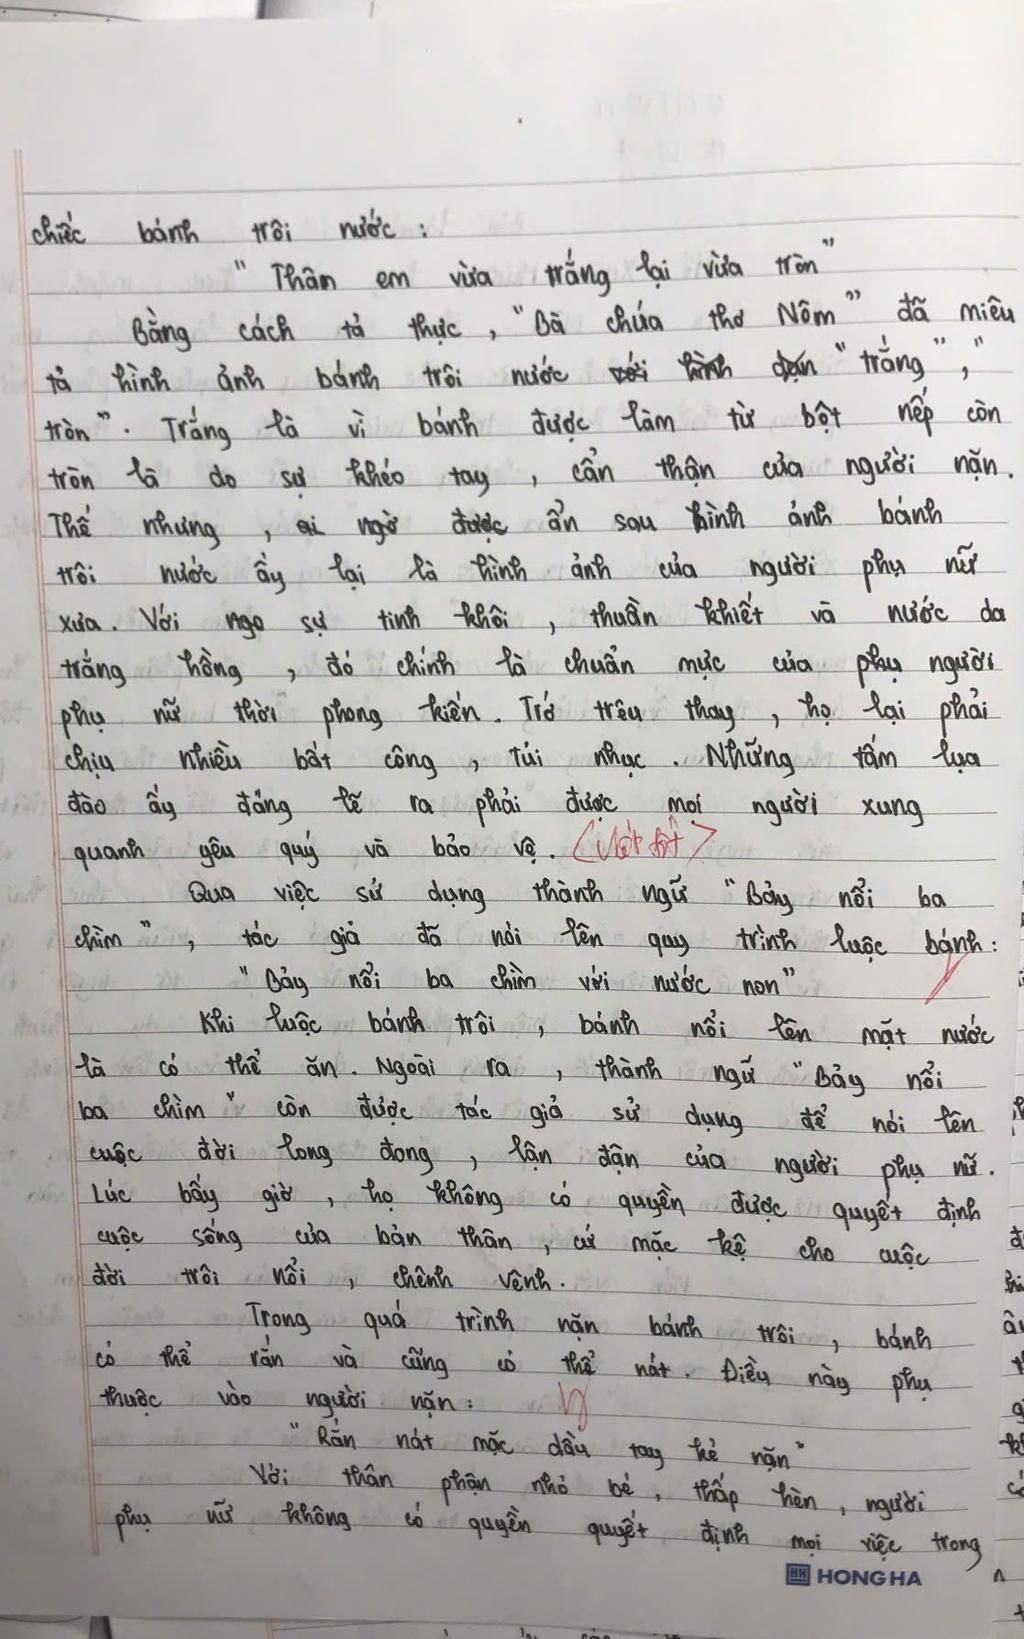 chiếc bánh trôi nước :
" Thân em vừa trắng lại vừa tròn "
Bằng cách tả thực , " Bà chúa thơ Nôm " đã miêu
tả hình ảnh bánh trôi nước với hình dạn " trắng " , "
tròn " . Trắng là vì bánh được làm từ bột nếp còn
tròn là do sự khéo tay , cẩn thận của người nặn .
Thế nhưng , ai ngờ được ẩn sau hình ảnh bánh
trôi nước ấy lại là hình ảnh của người phụ nữ
xưa . Với ngo sự tinh khôi , thuần khiết và nước da
trắng hồng , đó chính là chuẩn mực của phụ người
phụ nữ thời phong kiến . Trớ trêu thay , họ lại phải
chịu nhiều bất công , tủi nhục . Những tấm lụa
đào ấy đáng lẽ ra phải được mọi người xung
quanh yêu quý và bảo vệ .
Qua việc sử dụng thành ngữ " Bảy nổi ba
chìm " , tác giả đã nói lên quy trình luộc bánh :
" Bảy nổi ba chìm với nước non "
Khi luộc bánh trôi , bánh nổi lên mặt nước
là có thể ăn . Ngoài ra , thành ngữ " Bảy nổi
ba chìm " còn được tác giả sử dụng để nói lên
cuộc đời long đong , lận đận của người phụ nữ .
Lúc bấy giờ , họ không có quyền được quyết định
cuộc sống của bản thân , cứ mặc kệ cho cuộc
đời trôi nổi , chênh vênh .
Trong quá trình nặn bánh trôi , bánh
có thể rắn và cũng có thể nát . Điều này phụ
thuộc vào người nặn :
" Rắn nát mặc dầu tay kẻ nặn "
Với thân phận nhỏ bé , thấp hèn , người
phụ nữ không có quyền quyết định mọi việc trong
HONG HA